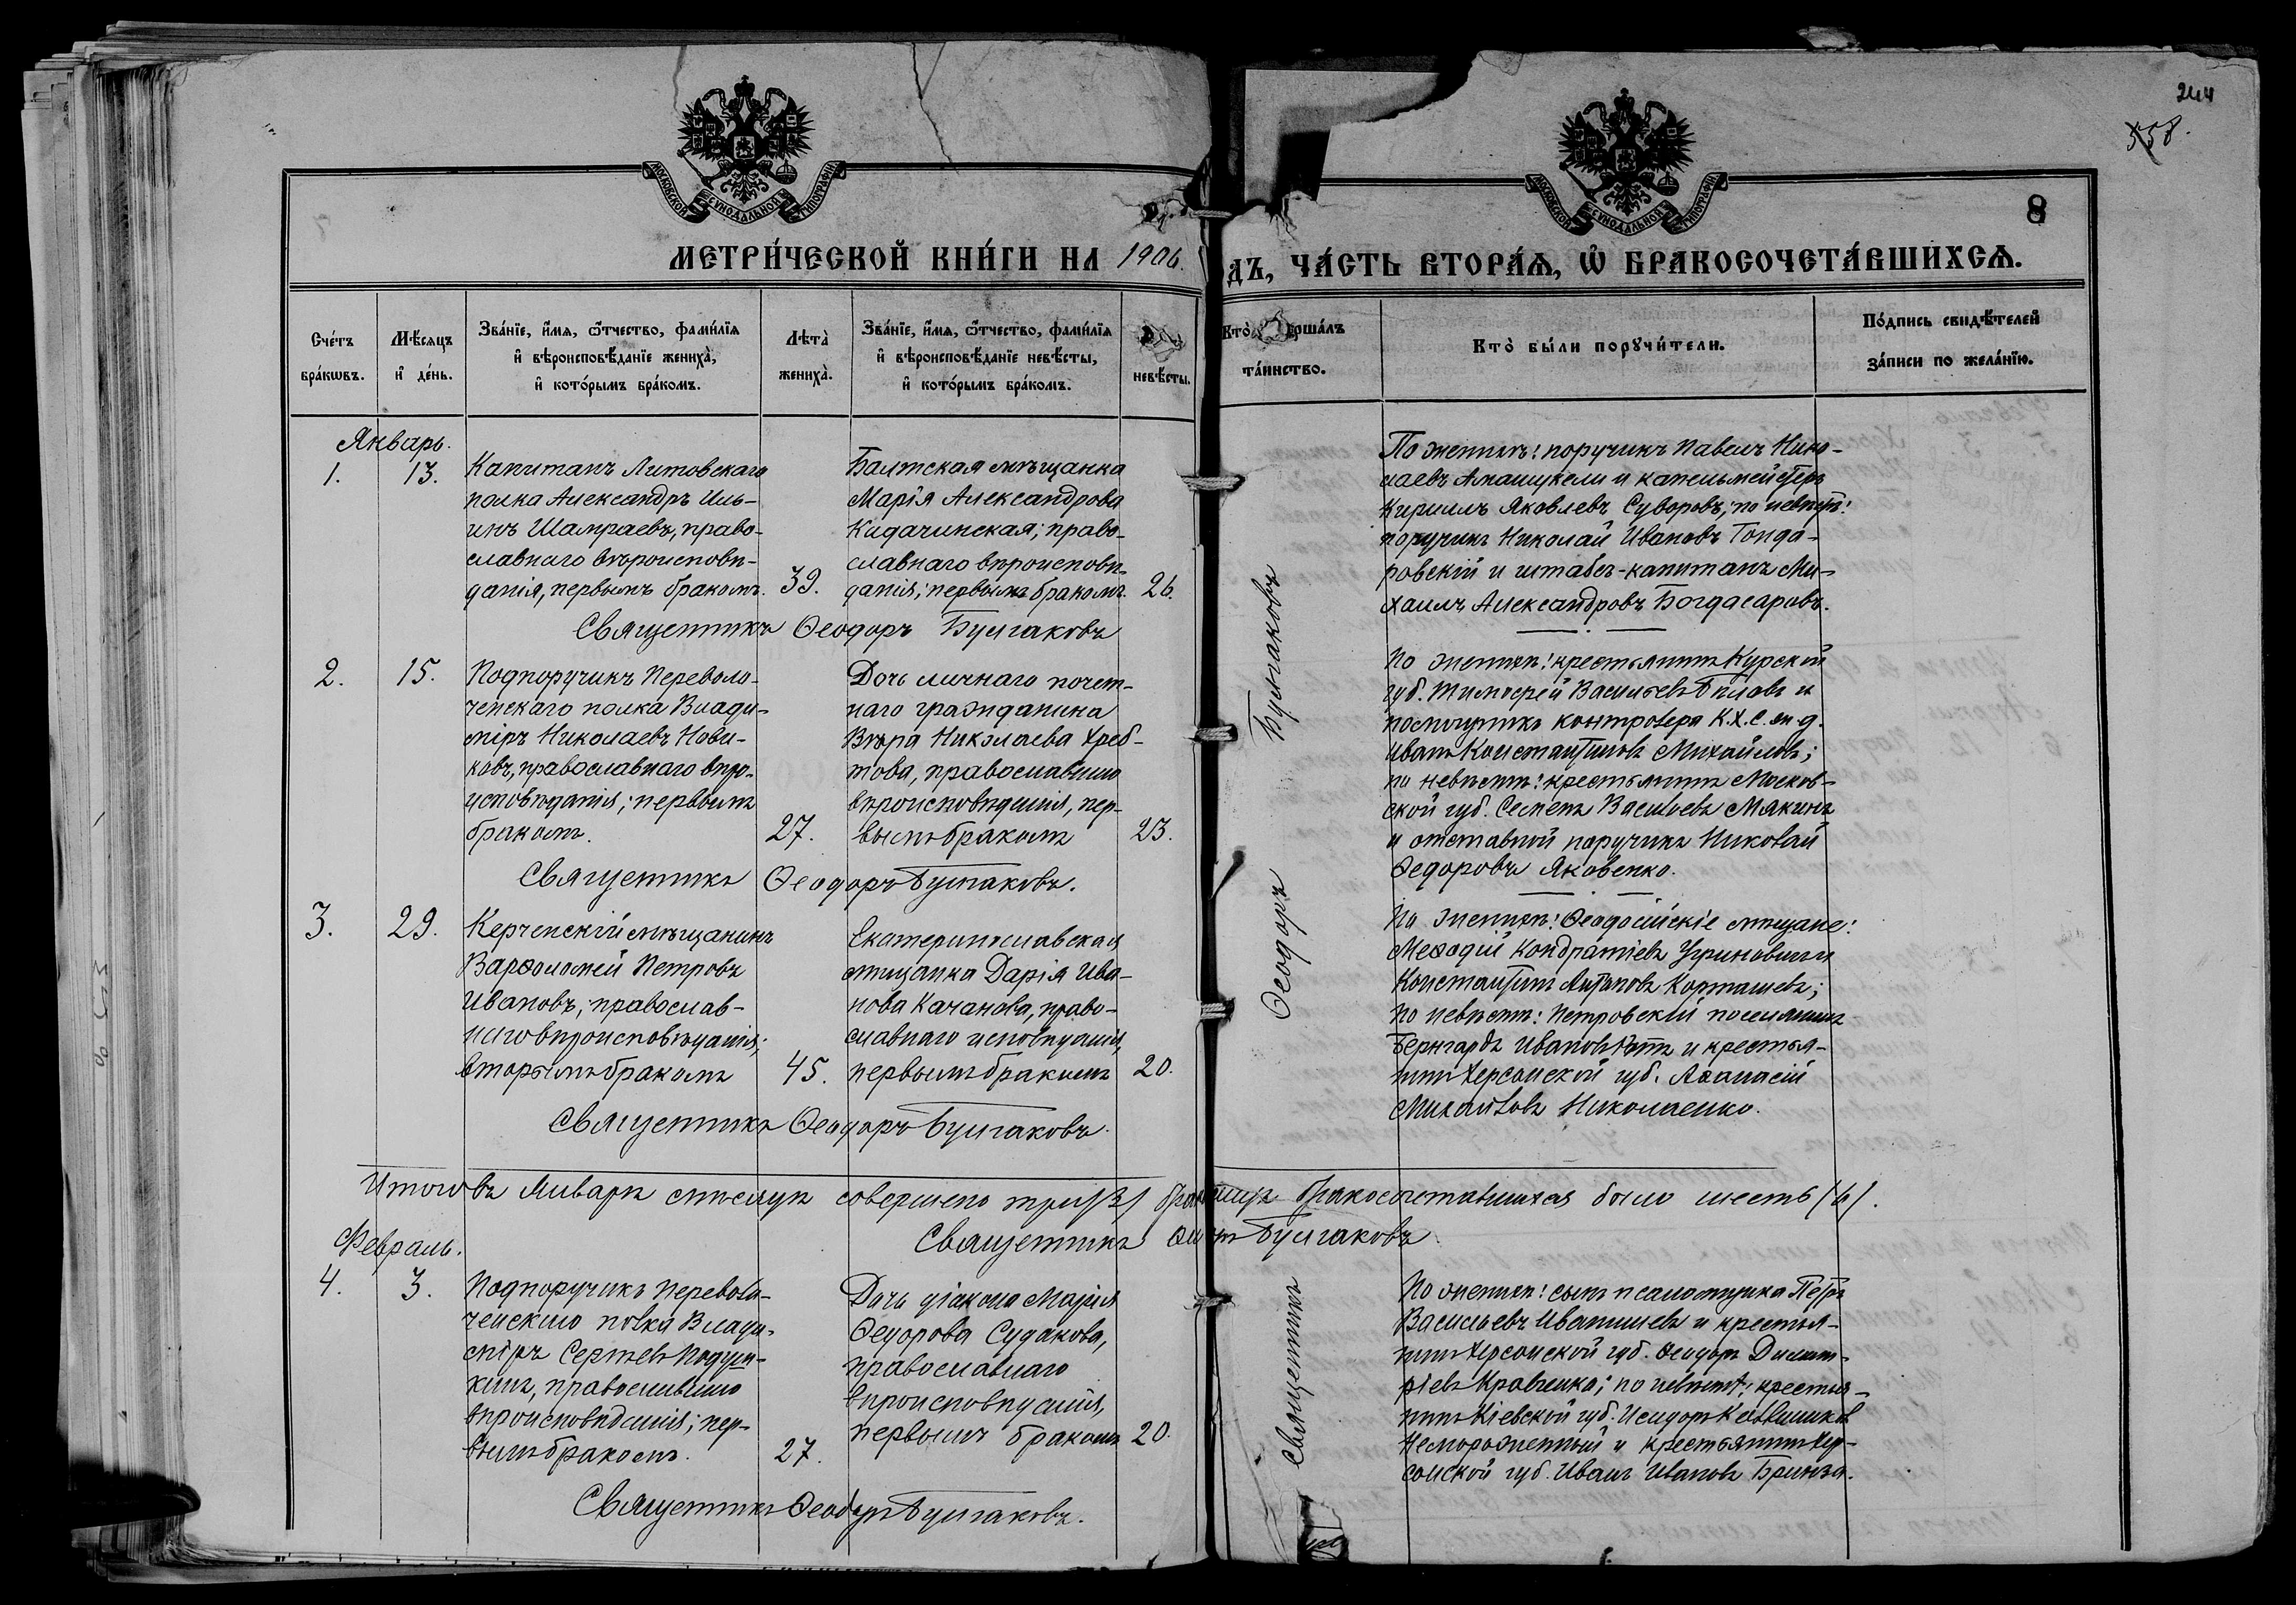 244
558.
8
МОСКОВСКОЙ СѴНОДАЛЬНОЙ ТИПОГРАФІИ
МОСКОВСКОЙ СѴНОДАЛЬНОЙ ТИПОГРАФІИ
МЕТРИ́ЧЕСКОЙ КНИ́ГИ НА 1906.
ДЪ, ЧА́СТЬ ВТОРА́Ѧ, Ѡ҆ БРАКОСОЧЕТА́ВШИХСѦ.
Сче́тъ
бра́кѡвъ.
Мѣ́сѧцъ
и҆ де́нь.
Зва́нїе, и҆́мѧ, ѻ҆́тчество, фами́лїѧ
и҆ вѣроисповѣ́данїе жениха̀,
и҆ кото́рымъ бра́комъ.
Лѣта̀
жениха̀.
Зва́нїе, и҆́мѧ, ѻ҆́тчество, фами́лїѧ
и҆ вѣроисповѣ́данїе невѣ́сты,
и҆ кото́рымъ бра́комъ.
невѣ́сты.
Кто̀ ершалъ
та́инство.
Кто̀ бы́ли порꙋчи́тели.
По́дпись свидѣ́телей
за́писи по жела́нїю.
Январь.
1.
13.
Капитанъ Литовскаго
полка Александръ Иль-
инъ Шампаевъ, право-
славнаго вѣроисповѣ-
данія, первымъ бракомъ.
39.
Балтская мѣщанка
Марія Александрова
Кидачинская; право-
славнаго вѣроисповѣ-
данія; первымъ бракомъ
26.
По женихѣ: поручикъ Павелъ Нико-
лаевъ Амашукели и капельмейстеръ
Кириллъ Яковлевъ Суворовъ; по невѣстѣ:
поручикъ Николай Ивановъ Гонда-
ровскій и штабсъ-капитанъ Ми-
хаилъ Александровъ Богдасаровъ.
Священникъ Ѳеодоръ Булгаковъ
2.
15.
Подпоручикъ Переволо-
ченскаго полка Влади-
міръ Николаевъ Нови-
ковъ, православнаго вѣро-
исповѣданія; первымъ
бракомъ.
27.
Дочь личнаго почет-
наго гражданина
Вѣра Николаева Хреб-
това, православнаго
вѣроисповѣданія, пер-
вымъ бракомъ
23.
По женихѣ: крестьянинъ Курской
губ. Тимоѳей Васильевъ Бѣловъ и
помощникъ контролера К.Х.С. ж.д.
Иванъ Константиновъ Михайловъ;
по невѣстѣ: крестьянинъ Москов-
ской губ. Семенъ Васильевъ Мякинъ
и отставной поручикъ Николай
Ѳедоровъ Яковенко.
Священникъ Ѳеодоръ Булгаковъ.
3.
29.
Керченскій мѣщанинъ
Варѳоломей Петровъ
Ивановъ, православ-
наго вѣроисповѣданія;
вторымъ бракомъ
45.
Екатеринославская
мѣщанка Дарія Ива-
нова Качанова, право-
славнаго исповѣданія,
первымъ бракомъ
20.
По женихѣ: Ѳеодосійскіе мѣщане:
Меѳодій Кондратіевъ Угриновичъ и
Константинъ Карташевъ;
по невѣстѣ: Петровскій поселянинъ
Бернгардъ Ивановъ и крестья-
нинъ Херсонской губ. Аѳанасій
Михайловъ Николаенко.
Священникъ Ѳеодоръ Булгаковъ.
Итого въ Январѣ мѣсяцѣ совершено три /3/ бракосочетавшихся было шесть /6/.
Священникъ Булгаковъ
Февраль.
4.
3.
Подпоручикъ Переволо-
ченскаго полка Влади-
міръ Сергѣевъ Подуш-
кинъ, православнаго
вѣроисповѣданія; пер-
вымъ бракомъ.
27.
Дочь діакона Марія
Ѳедорова Судакова,
православнаго
вѣроисповѣданія,
первымъ бракомъ
20.
По женихѣ: сынъ псаломщика Петръ
Васильевъ Иванишевъ и крестья-
нинъ Херсонской губ. Ѳеодоръ Димит-
ріевъ Кравченко; по невѣстѣ: крестья-
нинъ Кіевской губ. Исидоръ
Немороженный и крестьянинъ Хер-
сонской губ. Иванъ Ивановъ Бринза.
Священникъ Ѳеодоръ Булгаковъ.
Священникъ Ѳеодоръ Булгаковъ